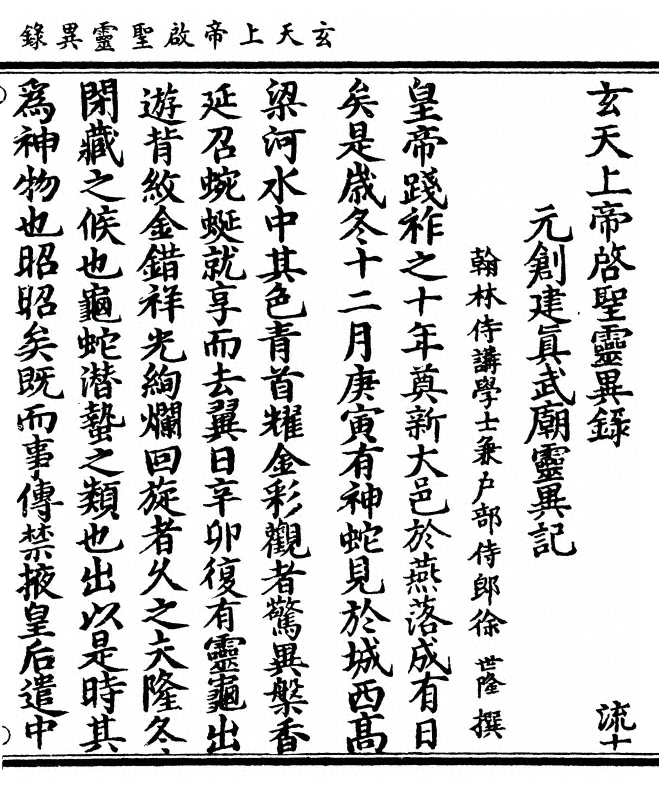 玄天上帝啟聖靈異錄
玄天上帝啓聖靈異錄 流十
元創建眞武廟靈異記
翰林侍講學士兼户部侍郎徐世隆撰
皇帝踐祚之十年奠新大邑於燕落成有日
矣是歲冬十二月庚寅有神蛇見於城西髙
梁河水中其色青首耀金彩觀者驚異槃香
延召蜿蜒就享而去翼日辛卯復有靈龜出
遊背紋金錯祥光絢爛回旋者久之夫隆冬
閉藏之候也龜蛇潜蟄之類也出以是時其
爲神物也昭昭矣既而事傳禁掖皇后遣中